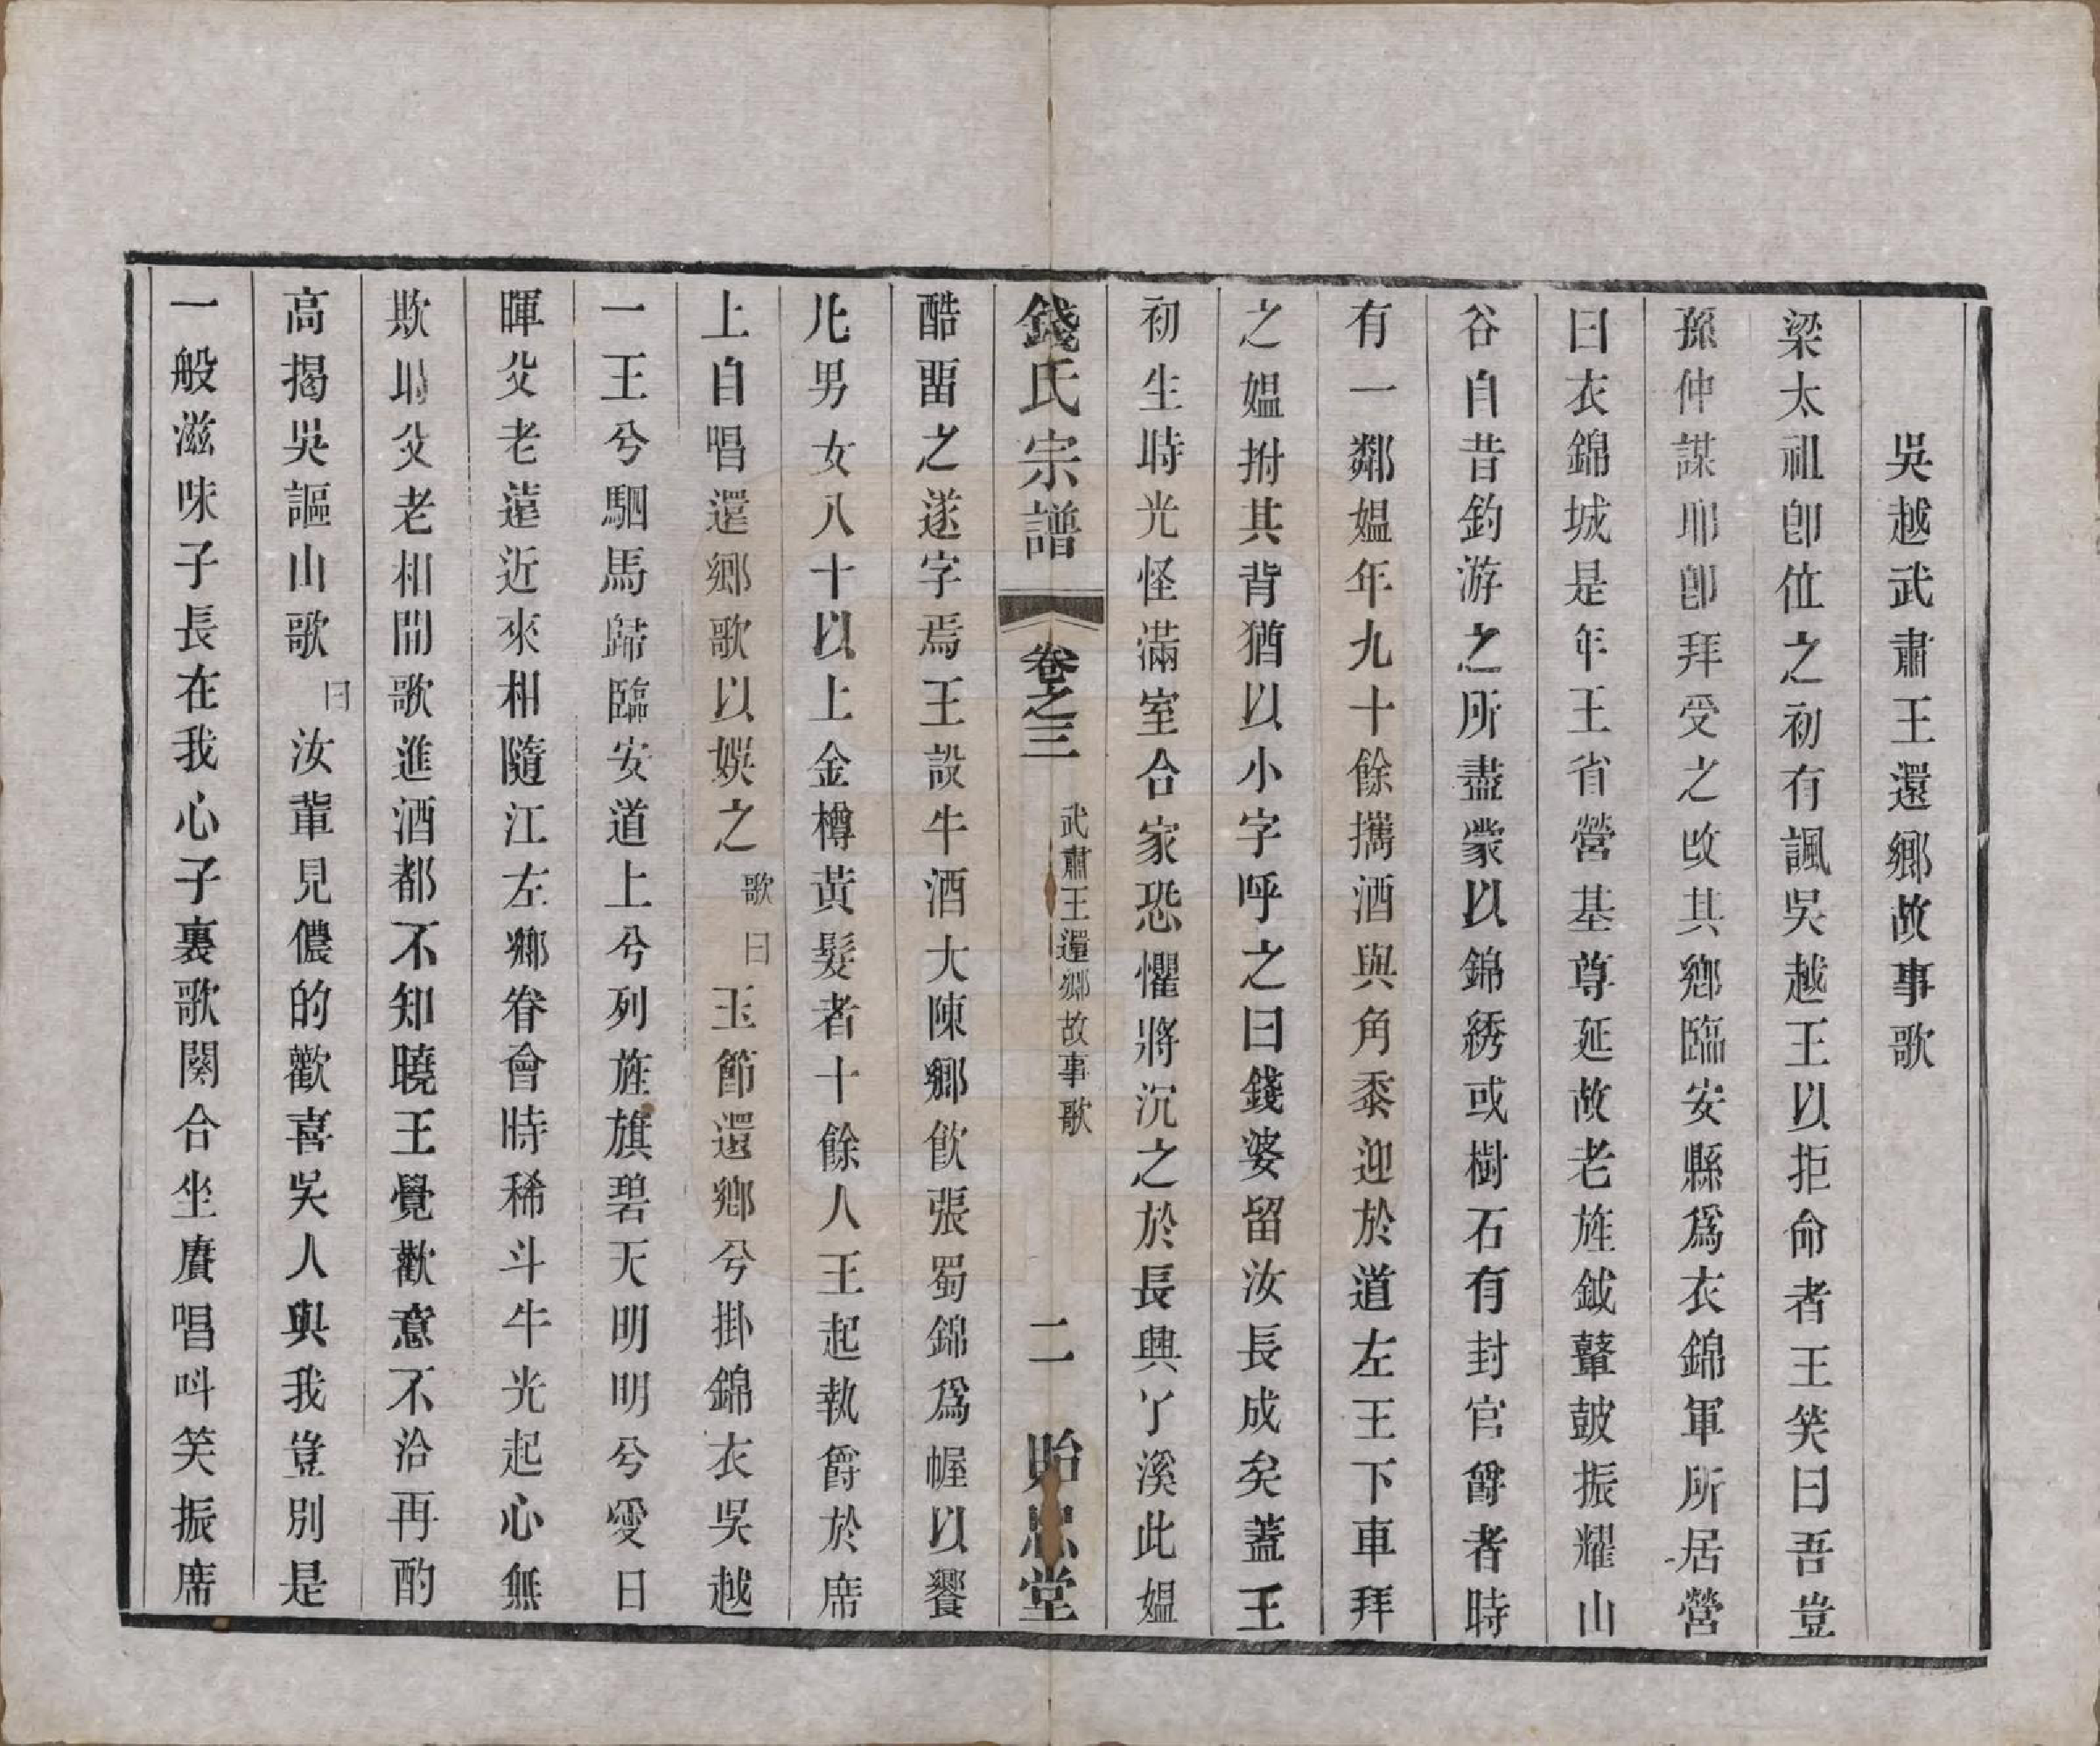 吳越武肅王還鄉故事歌
梁太祖卽位之初有諷吳越王以拒命者王笑曰吾豈
孫仲謀耶卽拜受之改其鄉臨安縣爲衣錦軍所居營
曰衣錦城是年王省營基尊延故老旌鉞鼙鼓振耀山
谷自昔釣游之所盡蒙以錦綉或樹石有封官爵者時
有一鄰媼年九十餘攜酒與角黍迎於道左王下車拜
之媼拊其背猶以小字呼之曰錢婆留汝長成矣蓋王
初生時光怪滿室合家恐懼將沉之於長興丫溪此媼
錢氏宗譜 卷之三 武肅王還鄉故事歌 二 貽思堂
酷畱之遂字焉王設牛酒大陳鄉飲張蜀錦爲幄以饗
凡男女八十以上金樽黃髮者十餘人王起執爵於席
上自唱還鄉歌以娛之 歌曰 玉節還鄉兮掛錦衣吳越
一王兮駟馬歸臨安道上兮列旌旗碧天明明兮愛日
暉父老遠近來相隨江左鄉眷會時稀斗牛光起心無
欺時父老相聞歌進酒都不知曉王覺歡意不洽再酌
高揭吳謳山歌 曰 汝輩見儂的歡喜吳人與我豈別是
一般滋味子長在我心子裏歌闋合坐賡唱呌笑振席